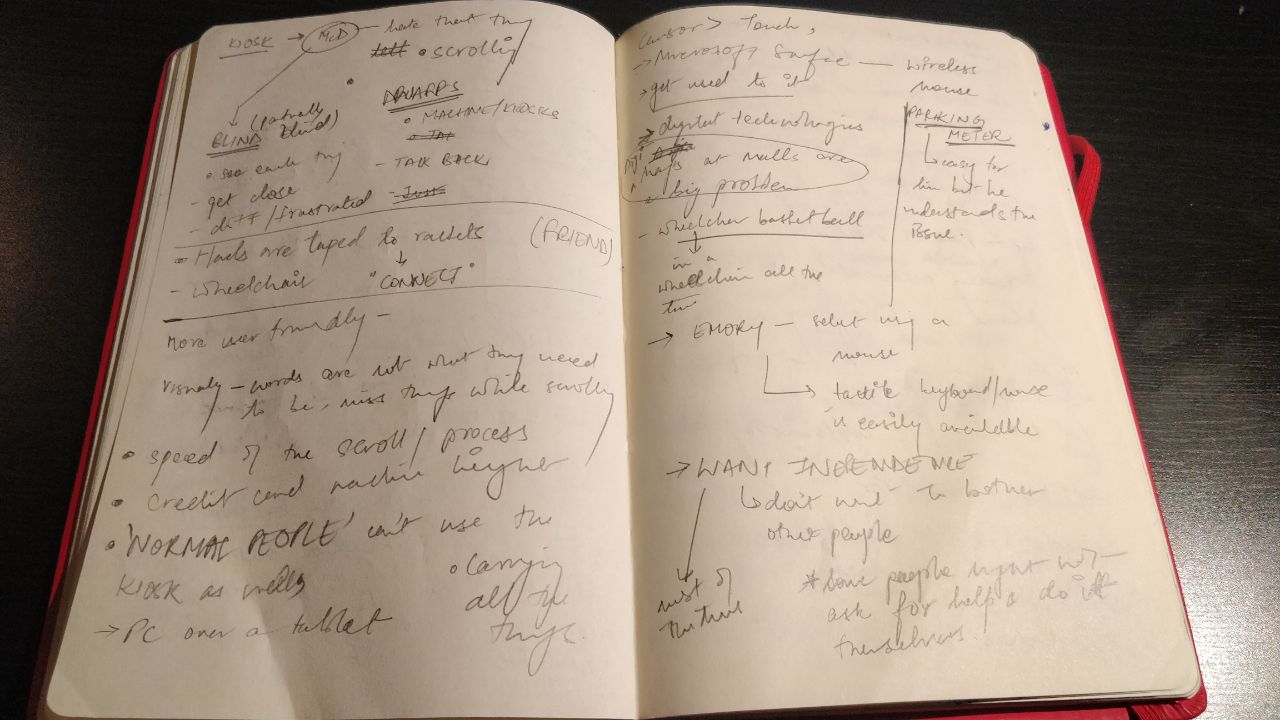 KIOSK → McD — hate that they
• scrolling
BLIND (partially blind)
• see each thing
- get close
- diff/frustrated
DWARFS
• MACHINE/KIOSKS
- TALK BACK
• Hands are taped to rackets (FRIEND)
- wheelchair "CONNECT"
More user friendly -
visually - words are not what they need
to be, miss things while scrolling
• speed of the scroll/process
• credit card machine higher
• 'NORMAL PEOPLE' can't use the
KIOSK as well
→ PC over a tablet
• Carrying
all the
things.
Cursor > Touch,
→ Microsoft Surface — wireless
mouse
→ get used to it
→ digital technologies
maps at malls are
big problem
- wheelchair basketball
in a
wheelchair all the
time
PARKING
METER
↳ easy for
him but he
understands the
issue.
→ EMORY - select using a
mouse
↳ tactile keyboard/mouse
is easily available
→ WANT INDEPENDENCE
↳ don't want to bother
other people
most of
the time
* Some people might not
ask for help & do it
themselves.